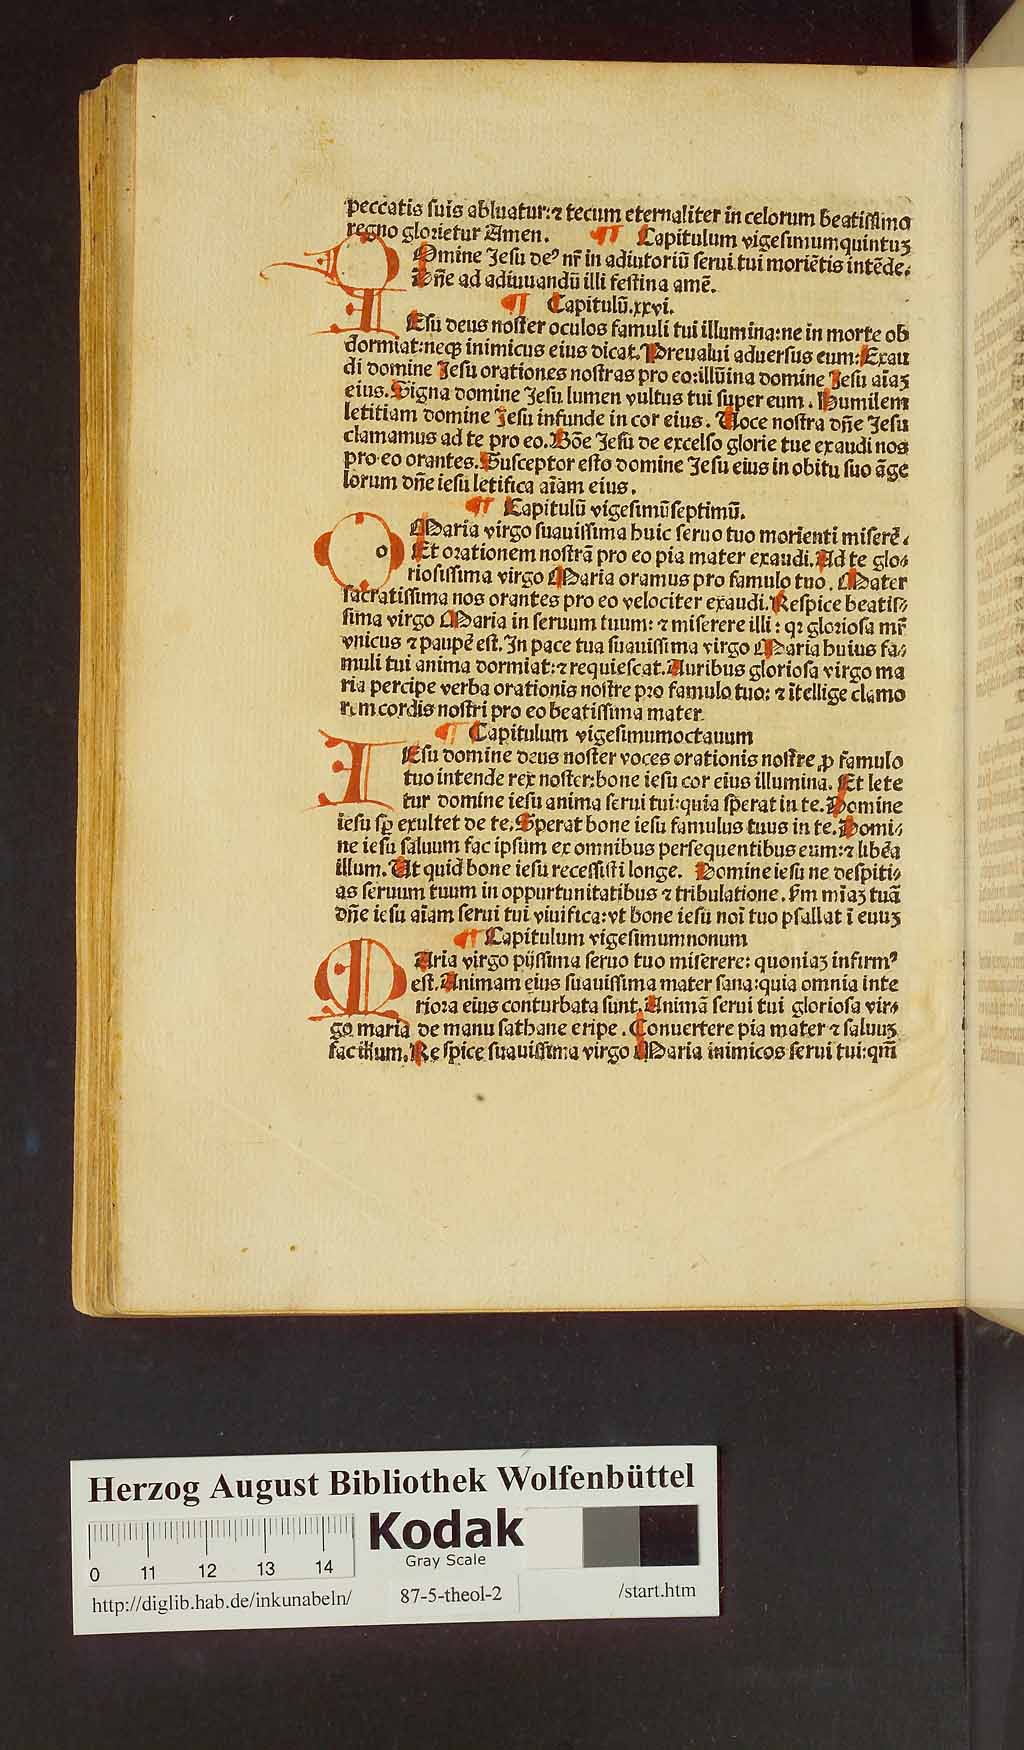 peccatis suis abluatur:⁊ tecum eternaliter in celorum beatissimo
regno glorietur Amen. ¶ Capitulum vigesimumquintuꝫ
DOmine Jesu deꝰ nr̄ in adiutoriū serui tui moriētis intēde.
Dn̄e ad adiuuandū illi festina amē.
¶ Capitulū.xxvi.
IEsu deus noster oculos famuli tui illumina:ne in morte ob
dormiat:neqꝫ inimicus eius dicat. Preualui aduersus eum: Exau
di domine Jesu orationes nostras pro eo:illūina domine Jesu aīaꝫ
eius. Signa domine Jesu lumen vultus tui super eum. Humilem
letitiam domine Jesu infunde in cor eius. Uoce nostra dn̄e Jesu
clamamus ad te pro eo. Bōe Jesu de excelso glorie tue exaudi nos
pro eo orantes. Susceptor esto domine Jesu eius in obitu suo āge
lorum dn̄e iesu letifica aīam eius.
¶ Capitulū vigesimūseptimū.
O Maria virgo suauissima huic seruo tuo morienti miserē.
Et orationem nostrā pro eo pia mater exaudi. Ad te glo⸗
riosissima virgo Maria oramus pro famulo tuo. Mater
sacratissima nos orantes pro eo velociter exaudi. Respice beatis⸗
sima virgo Maria in seruum tuum: ⁊ miserere illi: qꝛ gloriosa mr̄
vnicus ⁊ paupē est. In pace tua suauissima virgo Maria huius fa⸗
muli tui anima dormiat:⁊ requiescat. Auribus gloriosa virgo ma
ria percipe verba orationis nostre pro famulo tuo: ⁊ ītellige clamo
rem cordis nostri pro eo beatissima mater
¶ Capitulum vigesimumoctauum
IEsu domine deus noster voces orationis nostre ꝓ famulo
tuo intende rex noster:bone iesu cor eius illumina. Et lete
tur domine iesu anima serui tui:quia sperat in te. Domine
iesu sp̄ exultet de te. Sperat bone iesu famulus tuus in te. Domi⸗
ne iesu saluum fac ipsum ex omnibus persequentibus eum:⁊ libēa
illum. Ut quid bone iesu recessisti longe. Domine iesu ne despiti⸗
as seruum tuum in oppurtunitatibus ⁊ tribulatione. Fm mīaꝫ tuā
dn̄e iesu aīam serui tui viuifica:vt bone iesu noī tuo psallat ī euuꝫ
¶ Capitulum vigesimumnonum
MAria virgo pijssima seruo tuo miserere: quoniaꝫ infirmꝰ
est. Animam eius suauissima mater sana:quia omnia inte
riora eius conturbata sunt. Animā serui tui gloriosa vir⸗
go maria de manu sathane eripe. Conuertere pia mater ⁊ saluuꝫ
fac illum. Respice suauissima virgo Maria inimicos serui tui:qm̄
Herzog August Bibliothek Wolfenbüttel
0 11 12 13 14
Kodak
Gray Scale
http://diglib.hab.de/inkunabeln/ 87-5-theol-2 /start.htm